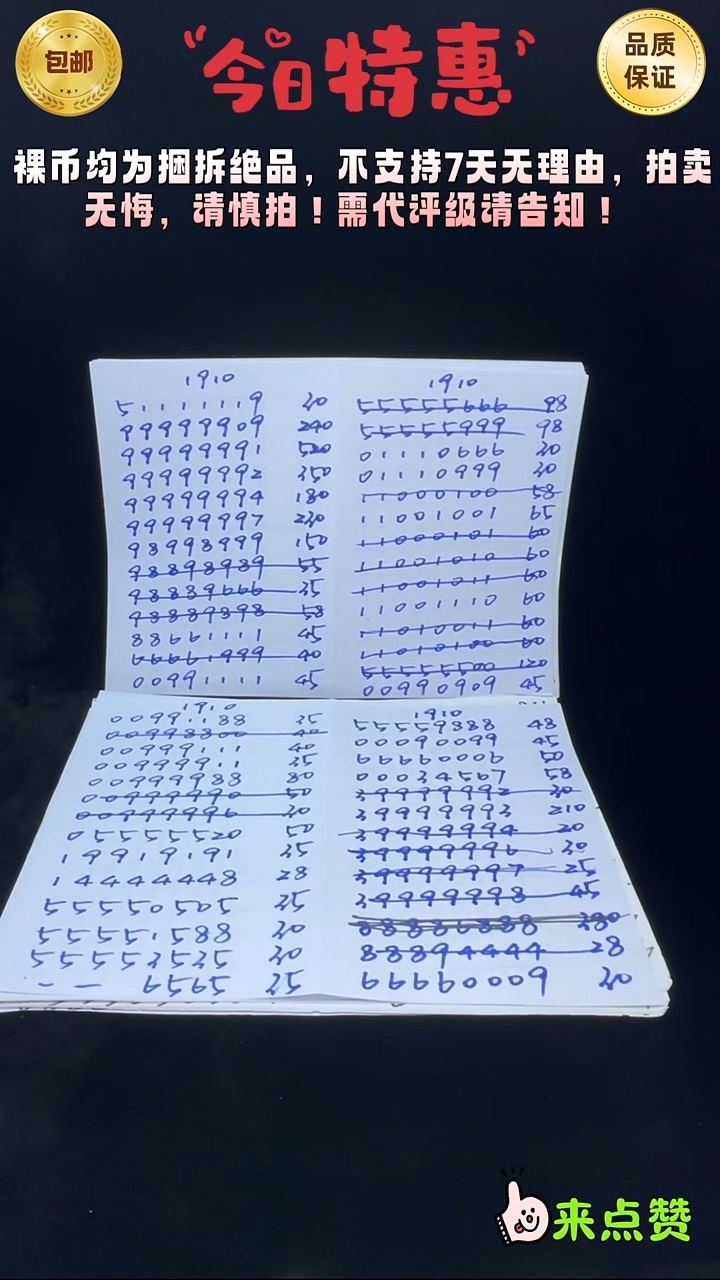 包邮
今日特惠
品质
保证
裸币均为捆拆绝品，不支持7天无理由，拍卖
无悔，请慎拍！需代评级请告知！
1910
51111119 30
99999909 240
99999991 520
99999992 350
99999994 180
99999997 230
98998999 150
98898989 55
98889666 35
98889898 58
88661111 45
66661999 40
00991111 45
1910
55555666 98
55555999 98
01110666 30
01110999 30
11000100 58
11001001 65
11000101 60
11001010 60
11001011 60
11001110 60
11010011 60
11010100 60
55555500 120
00990909 45
1910
00991188 35
00998800 40
00999111 40
00999911 35
00999988 80
00999990 50
00999996 30
05555520 50
19919191 35
14444448 28
55550505 35
55551588 30
55553535 30
— — 6959 35
1910
55559888 48
00090099 45
66660006 50
00034567 58
39999992 30
39999993 210
39999994 20
39999996 30
39999997 25
39999998 45
88886888 380
88894444 28
99990009 30
来点赞